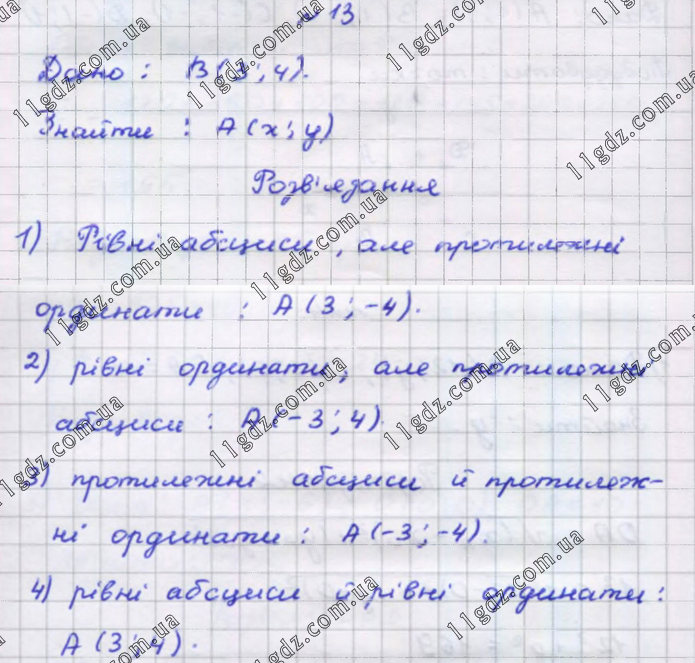 № 13
Дано : B(3;4).
Знайти : A(x;y)
Розв'язання
1) Рівні абсциси, але протилежні
ординати : A(3;-4).
2) рівні ординати, але протилежні
абсциси : A(-3;4).
3) протилежні абсциси й протилеж-
ні ординати : A(-3;-4).
4) рівні абсциси й рівні ординати :
A(3;4).
11gdz.com.ua
11gdz.com.ua
11gdz.com.ua
11gdz.com.ua
11gdz.com.ua
11gdz.com.ua
11gdz.com.ua
11gdz.com.ua
11gdz.com.ua
11gdz.com.ua
11gdz.com.ua
11gdz.com.ua